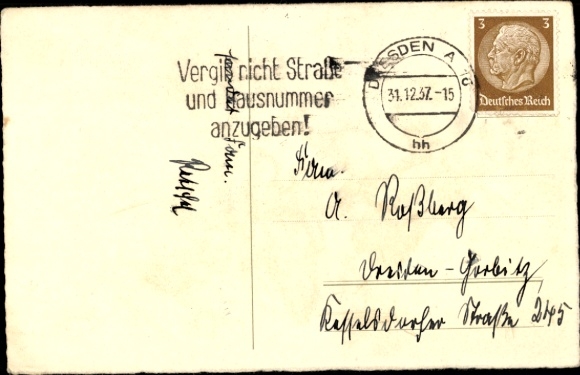 Vergiß nicht Straße
und Hausnummer
anzugeben!
DRESDEN A
31.12.37.-15
hh
3 3
Deutsches Reich
Fam.
A. Roßberg
Dresden-Gorbitz
Kesselsdorfer Straße